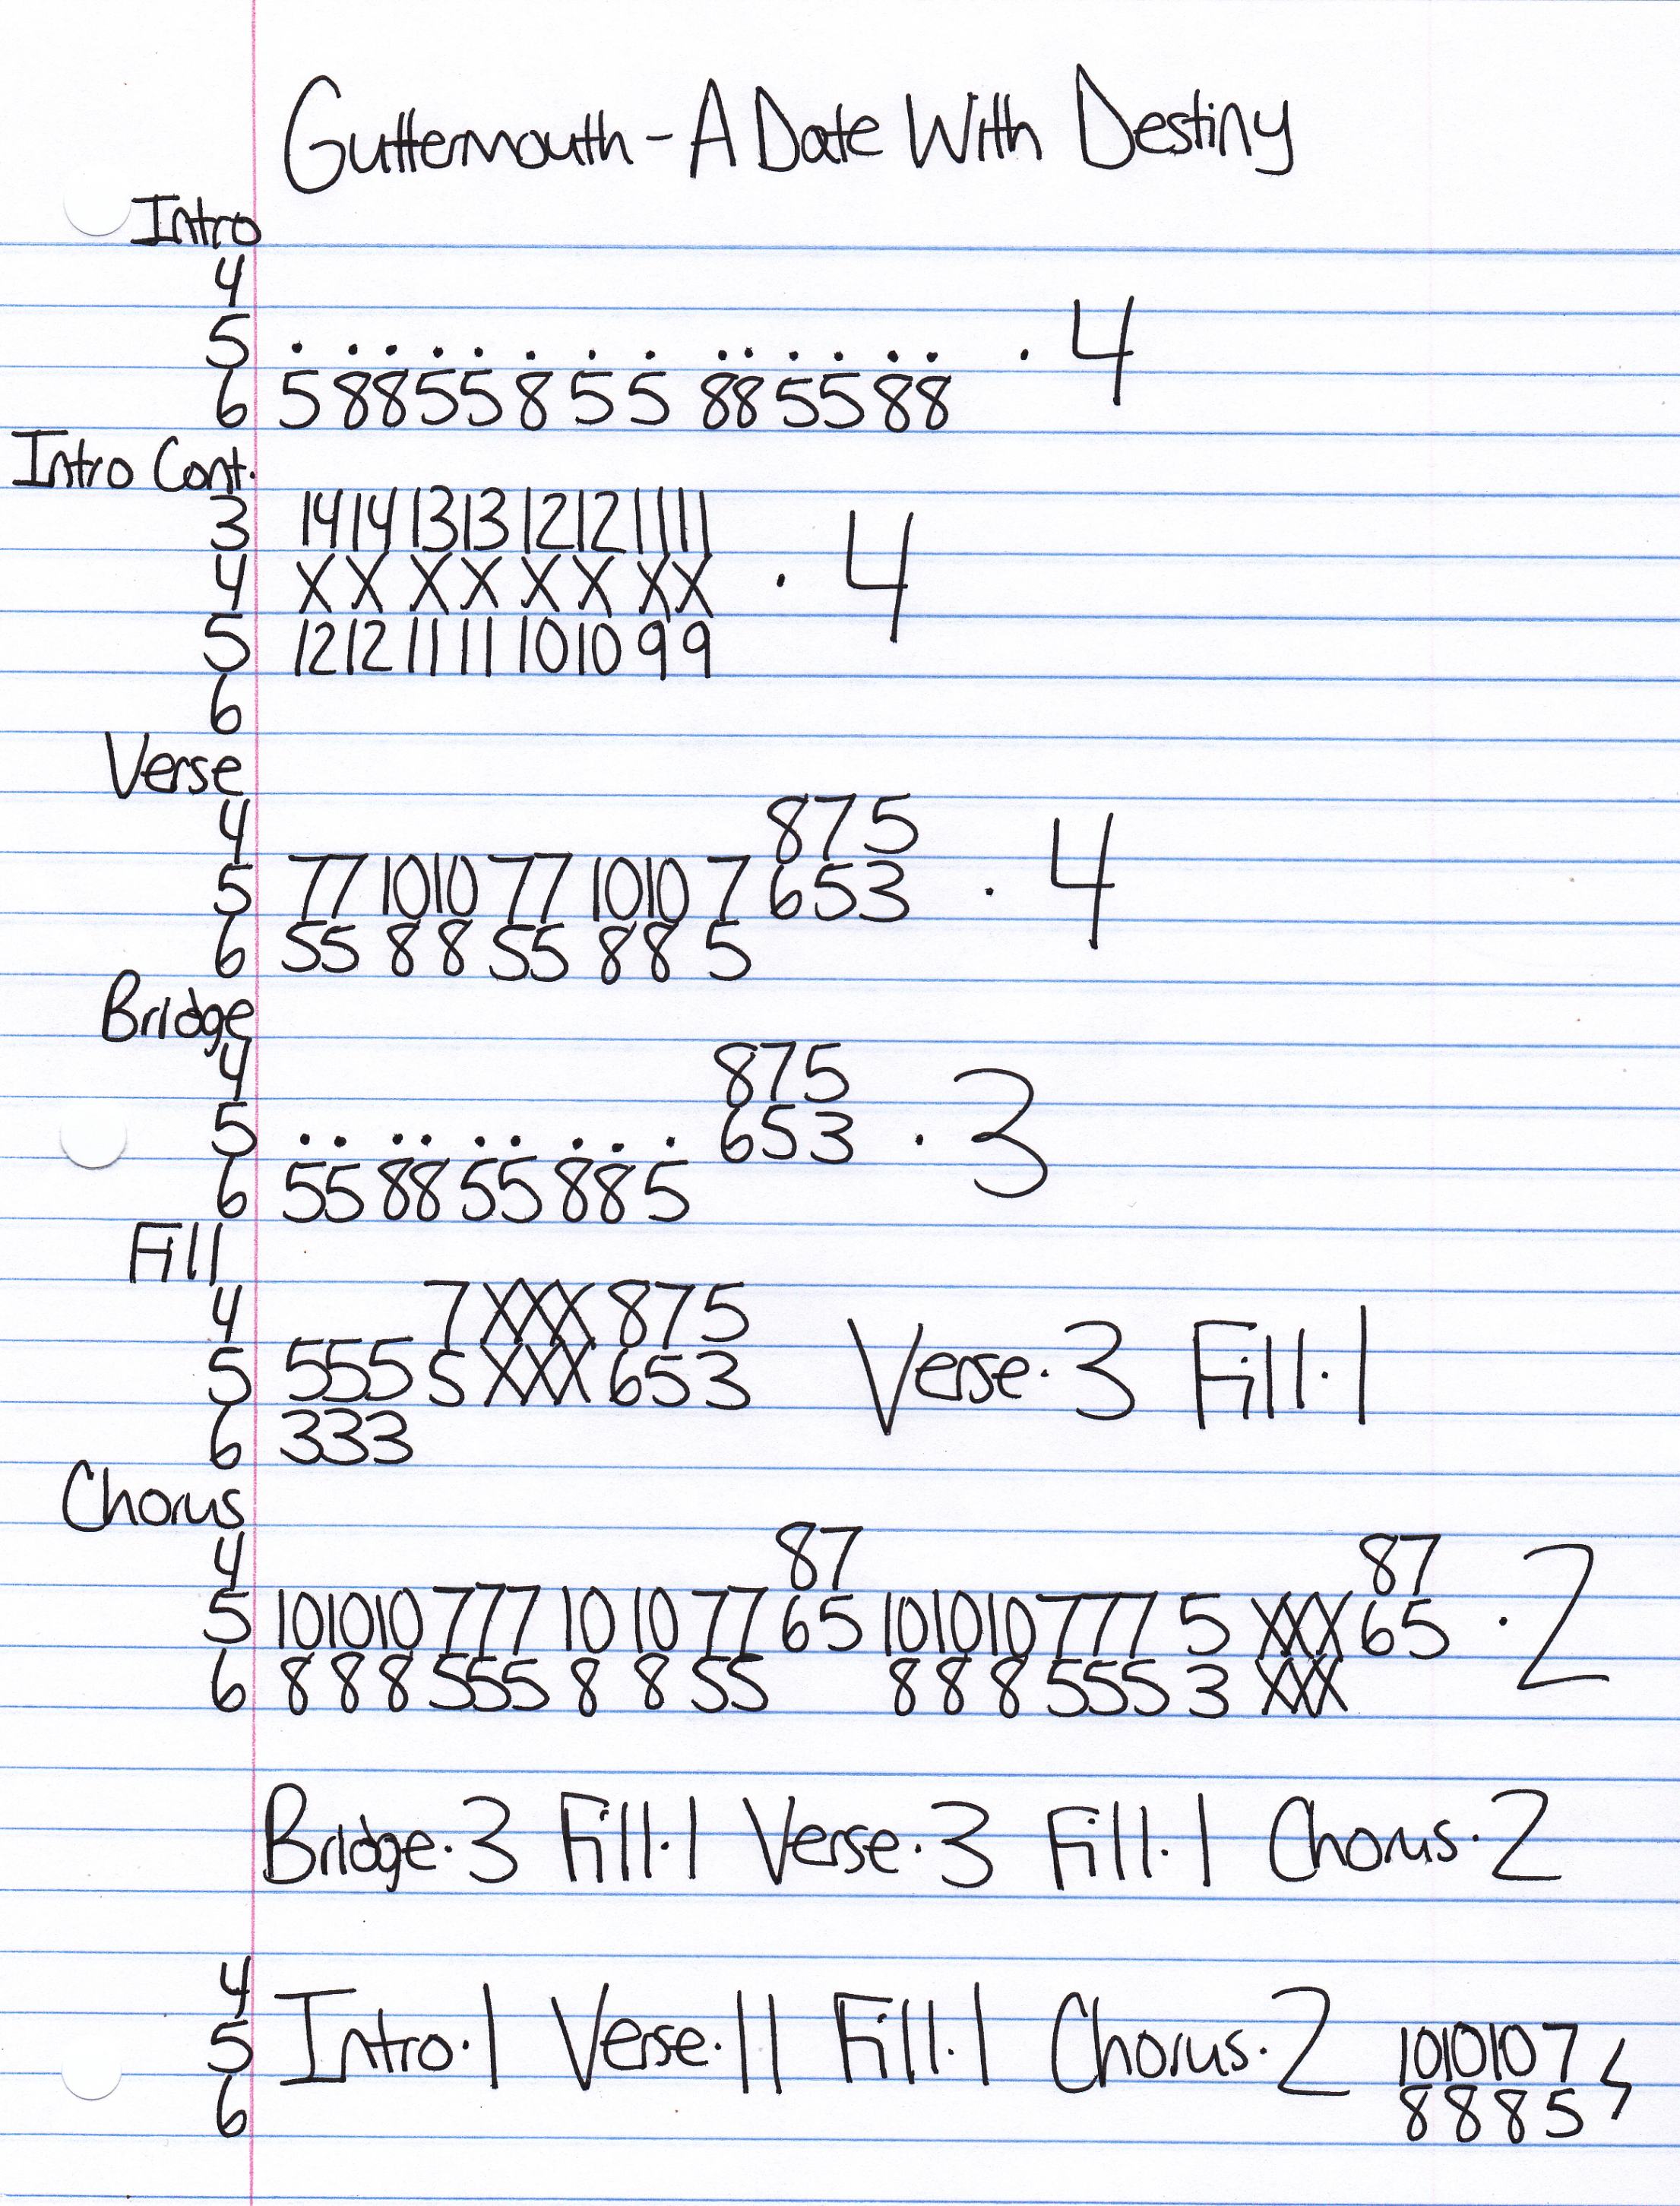 Guttermouth - A Date With Destiny
Intro
4
5 . . . . . . . . . . . . . . · 4
6 5 8 8 5 5 8 5 5 8 8 5 5 8 8
Intro Cont.
3 14 14 13 13 12 12 11 11
4 X X X X X X X X · 4
5 12 12 11 11 10 10 9 9
6
Verse
4 8 7 5
5 7 7 10 10 7 7 10 10 7 6 5 3 · 4
6 5 5 8 8 5 5 8 8 5
Bridge
4 8 7 5
5 . . . . . . . . . 6 5 3 · 3
6 5 5 8 8 5 5 8 8 5
Fill
4 7 X X X 8 7 5
5 5 5 5 5 X X X 6 5 3 Verse · 3 Fill · 1
6 3 3 3
Chorus
4 8 7 8 7
5 10 10 10 7 7 7 10 10 7 7 6 5 10 10 10 7 7 7 5 X X X 6 5 · 2
6 8 8 8 5 5 5 8 8 5 5 8 8 8 5 5 5 3 X X X
Bridge · 3 Fill · 1 Verse · 3 Fill · 1 Chorus · 2
4
5 Intro · 1 Verse · 11 Fill · 1 Chorus · 2 10 10 10 7
6 8 8 8 5